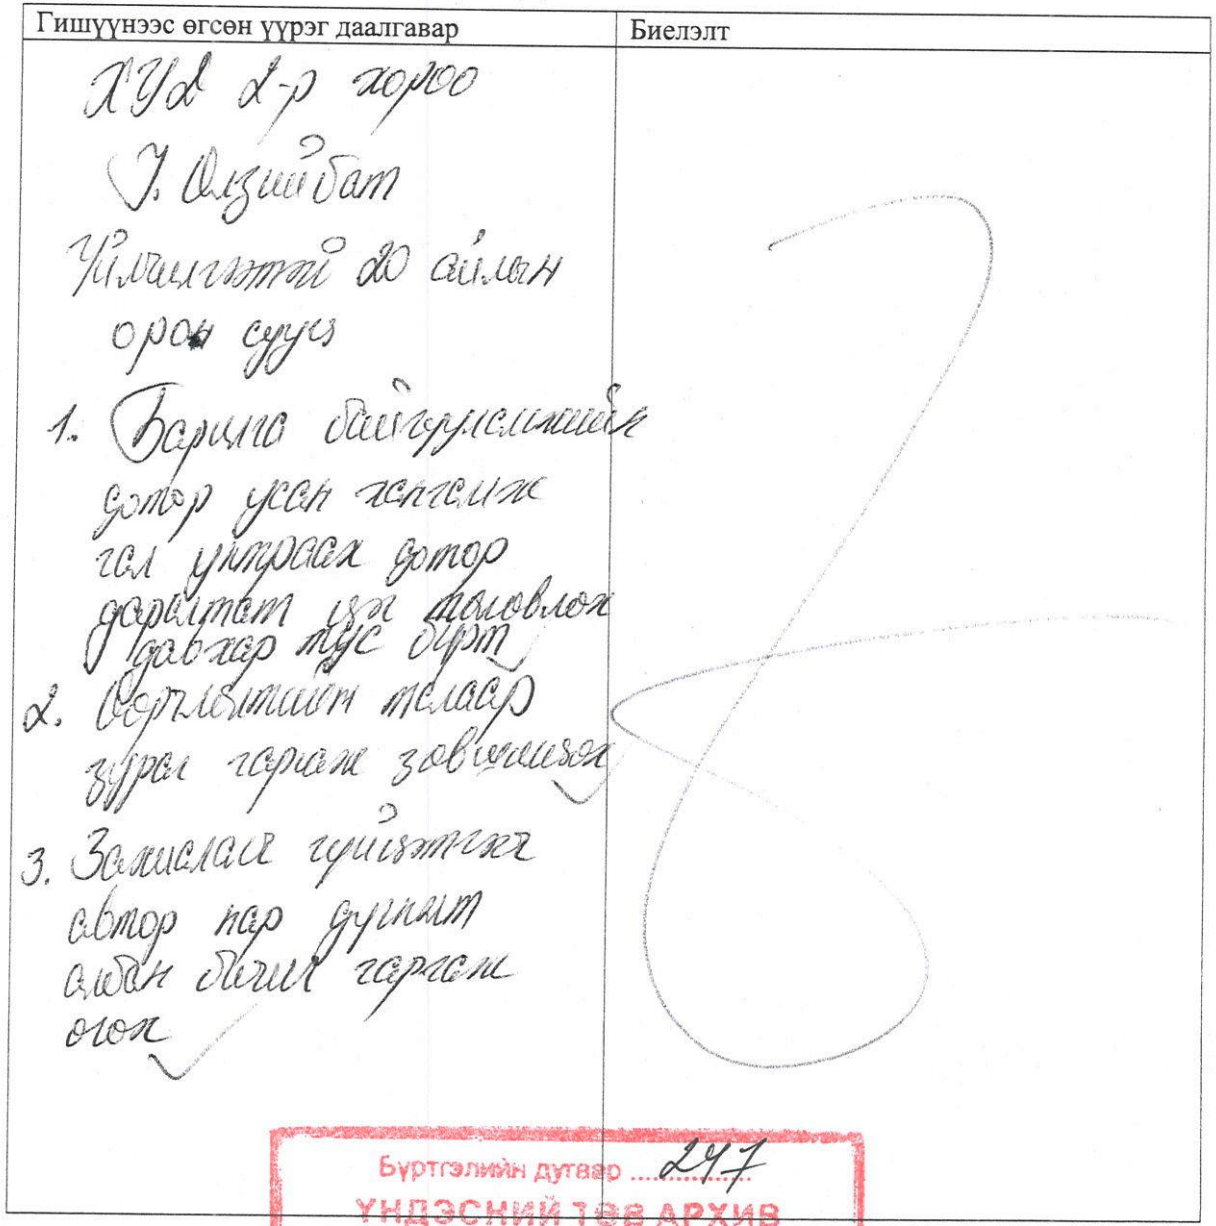 Гишүүнээс өгсөн үүрэг даалгавар
Биелэлт
ХУД 2-р хороо
У. Өлзийбат
Үйлчилгээтэй 20 айлын
орон сууц
1. Барилга байгууламжийн
дотор усан хангамж
гал унтраах дотор
даралтат цэг төлөвлөх
давхар тус бүрт
2. Өөрчлөлтийн талаар
зураг гаргаж зөвшилцөх
3. Захиалагч гүйцэтгэгч
автор нар дүгнэлт
албан бичиг гаргаж
өгөх
Бүртгэлийн дугаар ...247
ҮНДЭСНИЙ ТӨВ АРХИВ